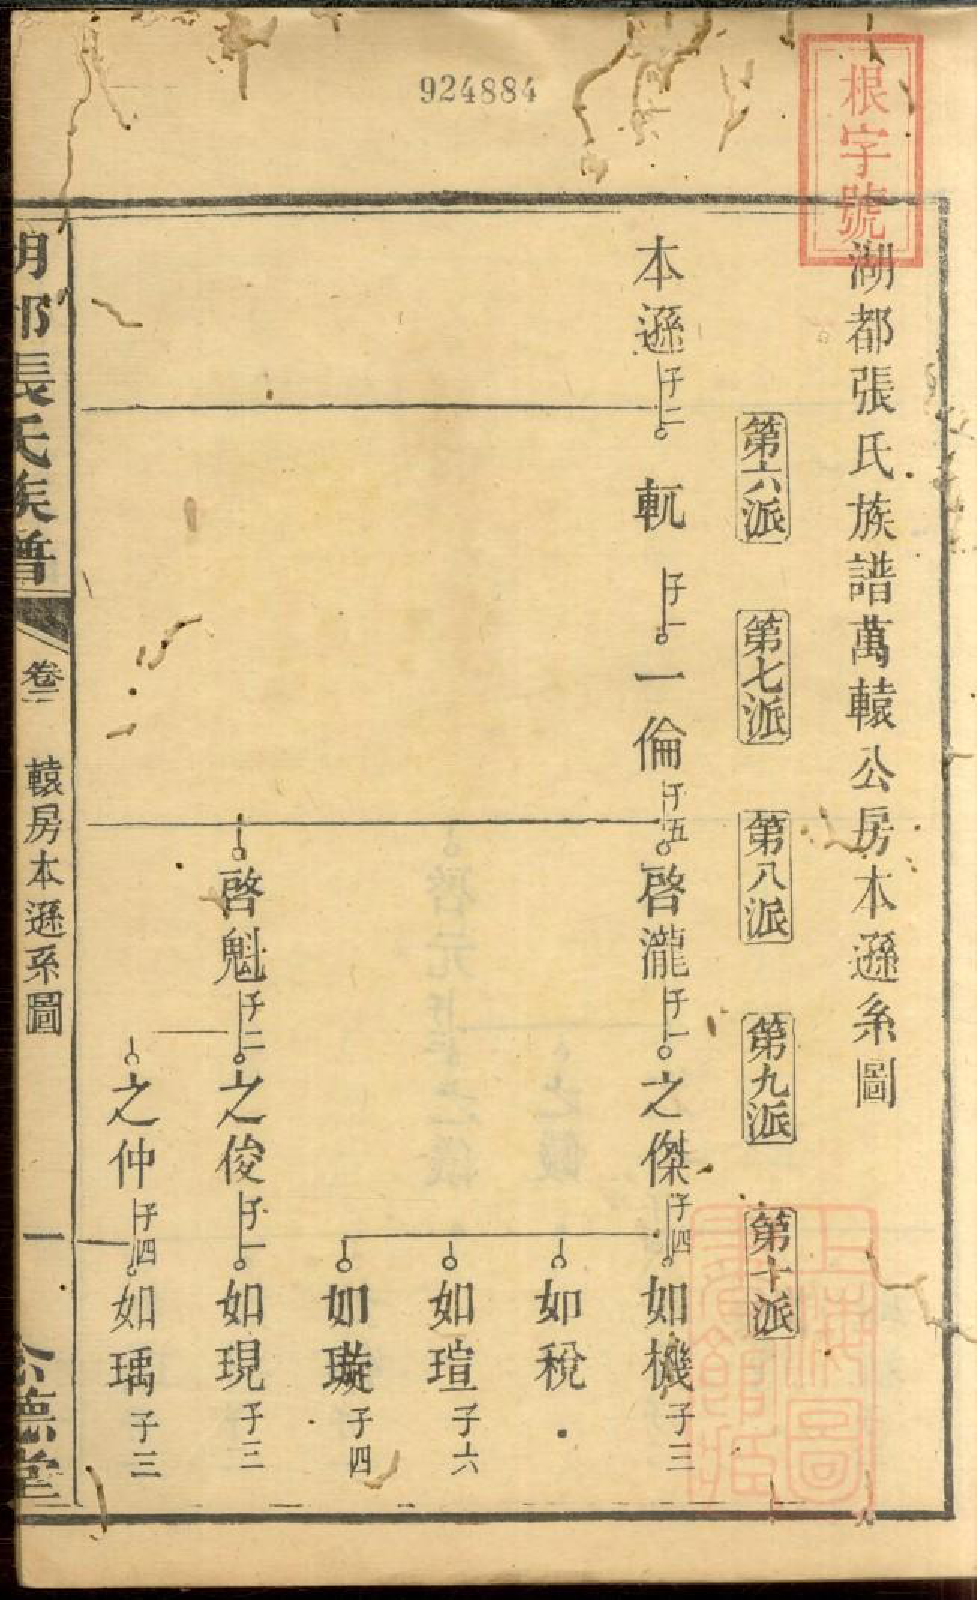 924884
根字號
湖都張氏族譜萬轅公房本遜系圖
第六派
第七派
第八派
第九派
第十派
本遜 子二
軏 子一
一倫 子五
啓瀧 子一
之傑 子四
如機 子三
如稅
如瑄 子六
如璇 子四
啓魁 子二
之俊 子一
如現 子三
之仲 子四
如瑀 子三
湖都張氏族譜
卷二
轅房本遜系圖
一
上海圖